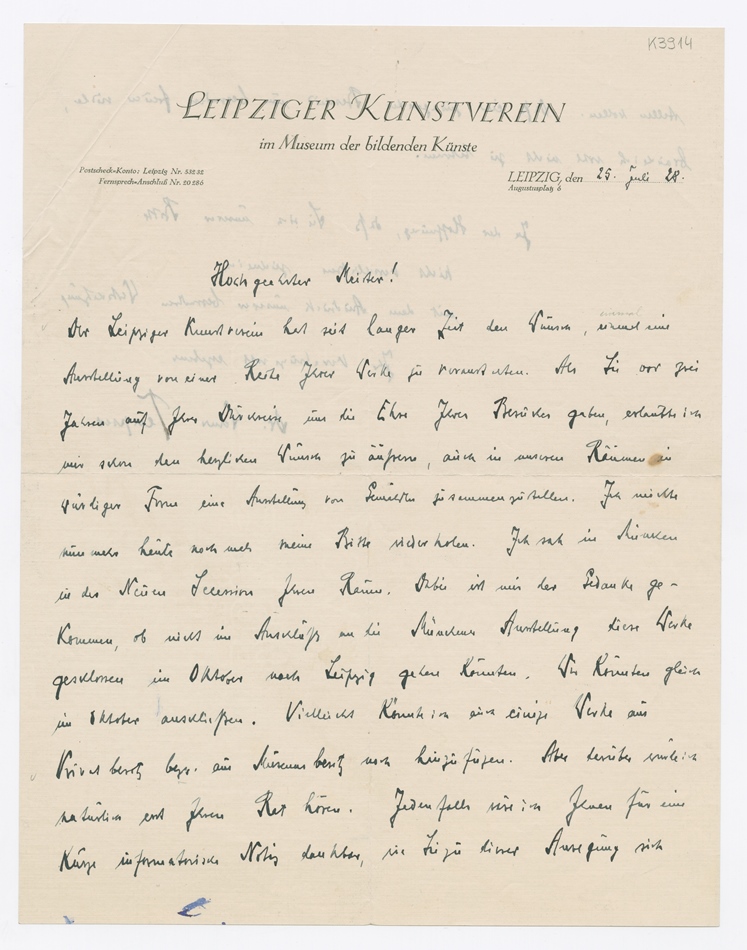 K3914
LEIPZIGER KUNSTVEREIN
im Museum der bildenden Künste
Postscheck-Konto: Leipzig Nr. 53232
Fernsprech-Anschluß Nr. 20286
LEIPZIG, den 25. Juli 28.
Augustusplatz 6
Hochgeehrter Meister!
Der Leipziger Kunstverein hat seit langer Zeit den Wunsch, einmal eine
Ausstellung von einer Reihe Ihrer Werke zu veranstalten. Als Sie vor zwei
Jahren auf Ihrer Durchreise uns die Ehre Ihres Besuches gaben, erlaubte ich
mir schon den herzlichen Wunsch zu äußern, auch in unseren Räumen in
würdiger Form eine Ausstellung von Gemälden zusammenzustellen. Ich möchte
nunmehr heute noch mals meine Bitte wiederholen. Ich sah in München
in der Neuen Secession Ihren Raum. Dabei ist mir der Gedanke ge-
kommen, ob nicht im Anschluß an die Münchner Ausstellung diese Werke
geschlossen im Oktober nach Leipzig gehen könnten. Wir könnten gleich
im Oktober anschließen. Vielleicht könnte ich auch einige Werke aus
Privatbesitz bezw. aus Museumsbesitz noch hinzufügen. Aber darüber würde ich
natürlich erst Ihren Rat hören. Jedenfalls wäre ich Ihnen für eine
kurze informatorische Notiz dankbar, wie Sie zu dieser Anregung sich